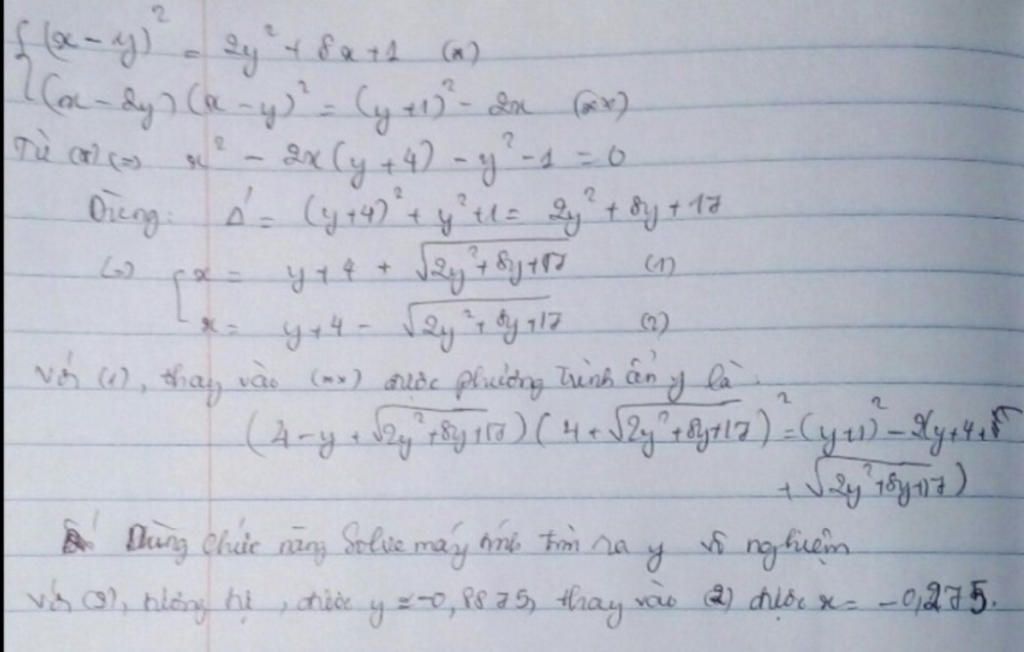 {(x - y)² = 2y² + 8x + 1 (*)
(x - 2y)(x - y)² = (y+1)² - 2x (**)
Từ (*) (=) x² - 2x(y + 4) - y² - 1 = 0
Dùng: Δ' = (y+4)² + y² + 1 = 2y² + 8y + 17
(=) [x = y + 4 + √(2y² + 8y + 17) (1)
x = y + 4 - √(2y² + 8y + 17) (2)
Với (1), thay vào (**) được phương trình ẩn y là
(4 - y + √(2y² + 8y + 17))(4 + √(2y² + 8y + 17))² = (y+1)² - 2(y + 4 +
+ √(2y² + 8y + 17))
Dùng chức năng Solve máy tính tìm ra y vô nghiệm
Với (2), tương tự, được y = -0,8875, thay vào (2) được x = -0,275.